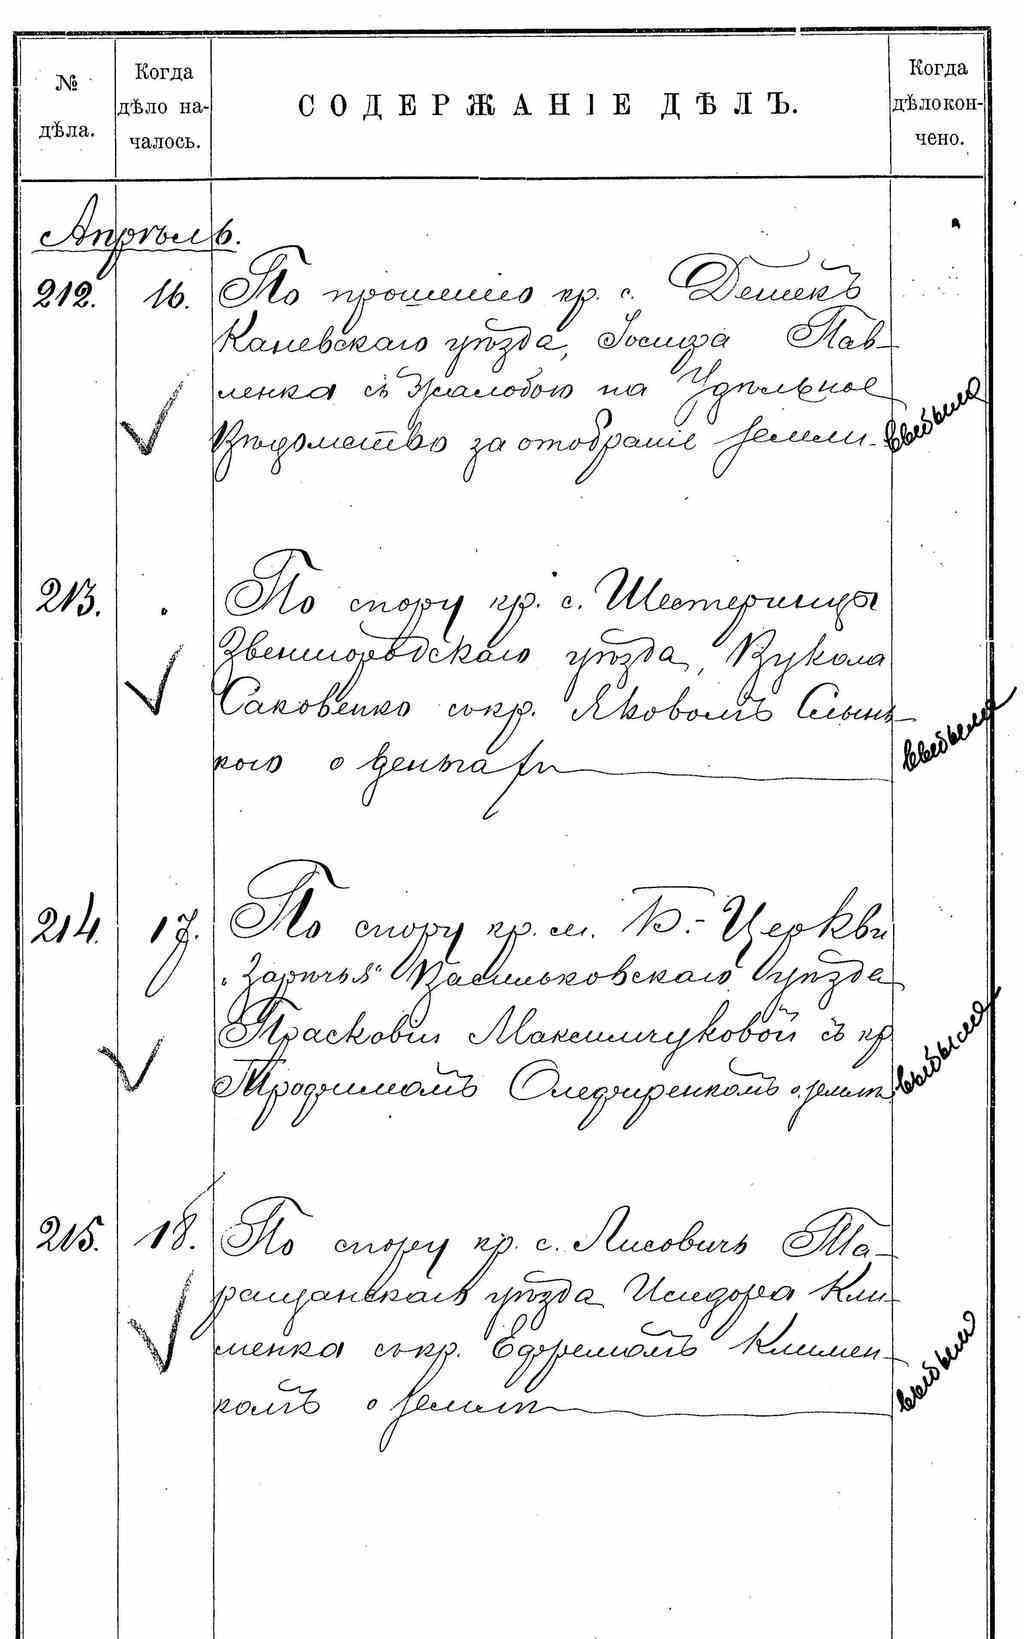 № дѣла.
Когда дѣло на-
чалось.
СОДЕРЖАНІЕ ДѢЛЪ.
Когда дѣло кон-
чено.
Апрѣль.
212. 16. По прошенію кр. с. Дешекъ
Каневскаго уѣзда, Іосифа Пав-
ленка съ жалобою на Удѣльное
Вѣдомство за отобраніе земли. выбыла
213. По спору кр. с. Шестеринцы
Звенигородскаго уѣзда, Вукола
Саковенко съ кр. Яковомъ
кого о деньгах выбыла
214. 17. По спору кр. м. Б.-Церкви
"Зарѣчья" Васильковскаго уѣзда
Прасковіи Максимчуковой съ кр
Трофимомъ Олефиренкомъ о землѣ выбыла
215. 18. По спору кр. с. Лисовичъ Та-
ращанскаго уѣзда Исидора Кли-
менка съ кр. Ефремомъ Климен-
комъ о землѣ выбыла